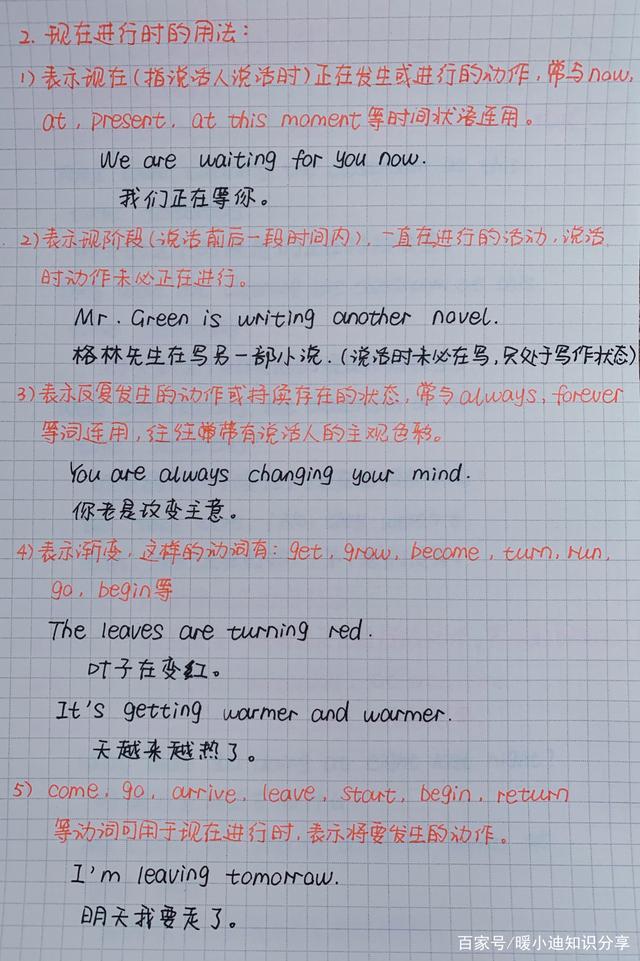 2. 现在进行时的用法:
1) 表示现在(指说话人说话时)正在发生或进行的动作,常与now,
at, present, at this moment等时间状语连用。
We are waiting for you now.
我们正在等你。
2) 表示现阶段(说话前后一段时间内),一直在进行的活动,说话
时动作未必正在进行。
Mr. Green is writing another novel.
格林先生在写另一部小说.(说话时未必在写,只处于写作状态)
3) 表示反复发生的动作或持续存在的状态,常与always, forever
等词连用,往往带有说话人的主观色彩。
You are always changing your mind.
你老是改变主意。
4) 表示渐变,这样的动词有: get, grow, become, turn, run,
go, begin等
The leaves are turning red.
叶子在变红。
It's getting warmer and warmer.
天越来越热了。
5) come, go, arrive, leave, start, begin, return
等动词可用于现在进行时,表示将要发生的动作。
I'm leaving tomorrow.
明天我要走了。
百家号/暖小迪知识分享